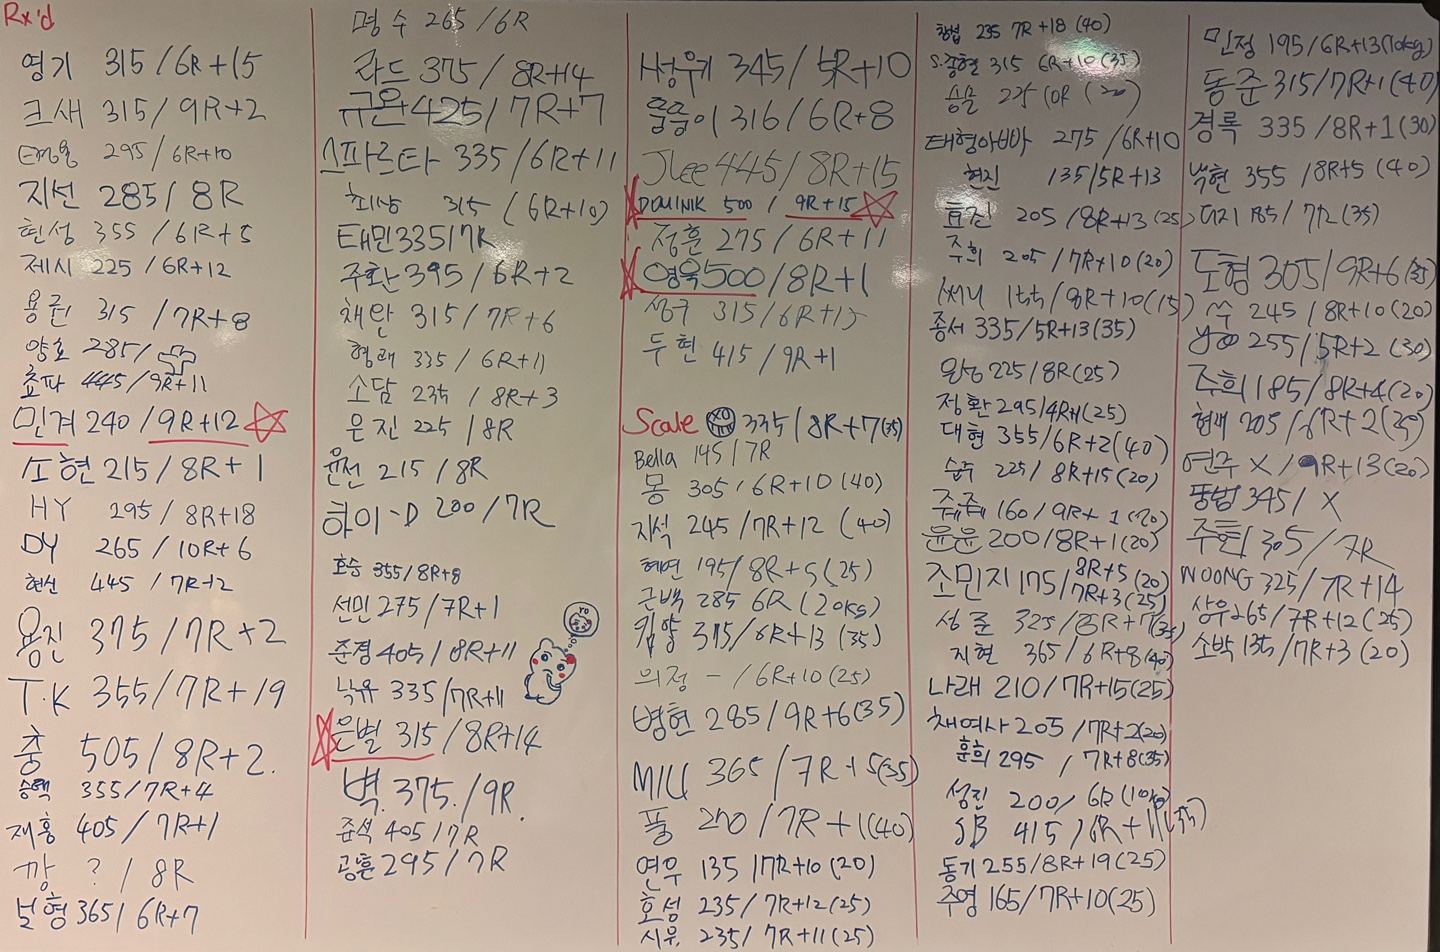 Rx'd
영기 315/6R+15
크새 315/9R+2
295/6R+10
지선 285/8R
현성 355/6R+5
제시 225/6R+12
용권 315/7R+8
양호 285/
효파 445/9R+11
민겨 240/9R+12
소현 215/8R+1
HY 295/8R+18
DY 265/10R+6
현신 445/7R+2
용진 375/7R+2
T.K 355/7R+19
충 505/8R+2.
승택 355/7R+4
재홍 405/7R+1
깡 ?/8R
보형 365/6R+7
명수 265/6R
라드 375/8R+14
규완 425/7R+7
스파르타 335/6R+11
희상 315 (6R+10)
태민 335/7R
주환 395/6R+2
채완 315/7R+6
형래 335/6R+11
소담 235/8R+3
은진 225/8R
윤선 215/8R
하이-D 200/7R
호승 355/8R+8
선민 275/7R+1
준경 405/8R+11
낙유 335/7R+11
은별 315/8R+14
벽. 375./9R.
준석 405/7R
공훈 295/7R
성위 345/5R+10
쭝쭝이 316/6R+8
JLee 445/8R+15
DOMINIK 500/9R+15
정훈 275/6R+11
영욱 500/8R+1
성구 315/6R+15
두현 415/9R+1
Scale 335/8R+7(35)
Bella 145/7R
몽 305/6R+10(40)
지석 245/7R+12 (40)
혜연 195/8R+5(25)
근백 285 6R (20kg)
킴량 375/6R+13 (35)
의정 - /6R+10(25)
병헌 285/9R+6(35)
MIU 365/7R+5(35)
풍 250/7R+1(40)
연우 135/7R+10(20)
호성 235/7R+12(25)
시우. 235/7R+11(25)
창섭 235 7R+18(40)
S.종현 315 6R+10(35)
승물 225
태형아빠 275/6R+10
현진 135/5R+13
효진 205/8R+13(25)
주희 205/7R+10(20)
써니 155/8R+10(15)
종서 335/5R+13(35)
완승 225/8R(25)
정환 295/4R+1(25)
대현 355/6R+2(40)
슬주 225/8R+15(20)
쥬쥬 160/9R+1(20)
윤윤 200/8R+1(20)
조민지 175/8R+5(20)
7R+3(25)
성준 325/8R+7(35)
지현 365/6R+8(40)
나래 210/7R+15(25)
채여사 205/7R+2(20)
훈희 295/7R+8(35)
성진 200/6R(10kg)
JB 415/6R+11(35)
동기 255/8R+19(25)
주영 165/7R+10(25)
민정 195/6R+13(10kg)
동준 315/7R+1(40)
경록 335/8R+1(30)
백현 355/8R+5(40)
더지 185/7R(35)
도형 305/9R+6(35)
쑤 245/8R+10(20)
255/5R+2(30)
주희 185/8R+4(20)
현재 205/6R+2(25)
연주 X/9R+13(20)
뚱범 345/X
주현 305/7R
WOONG 325/7R+14
상우 265/7R+12(25)
소박 135/7R+3(20)